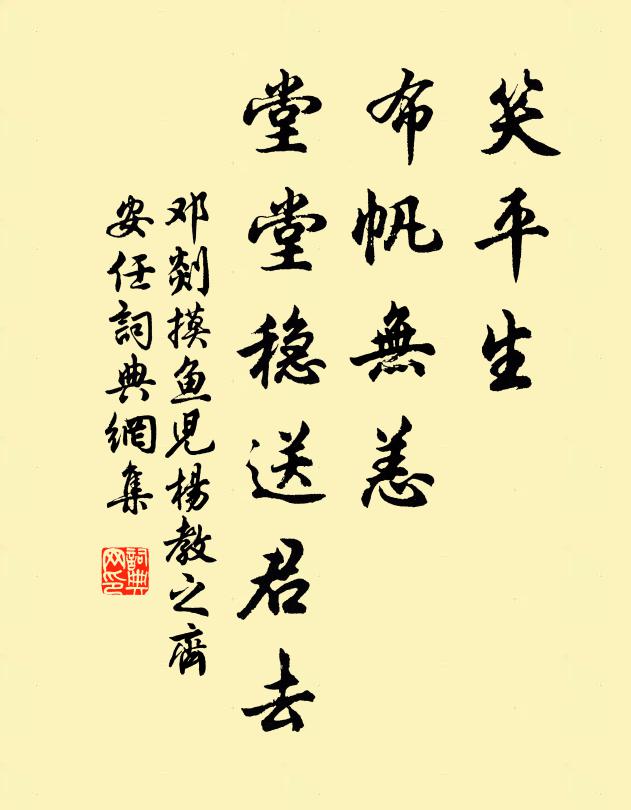 笑平生
布帆無恙
堂堂穩送君去
邓剡摸鱼児楊教之齊
安任詞典網集
詞典网印